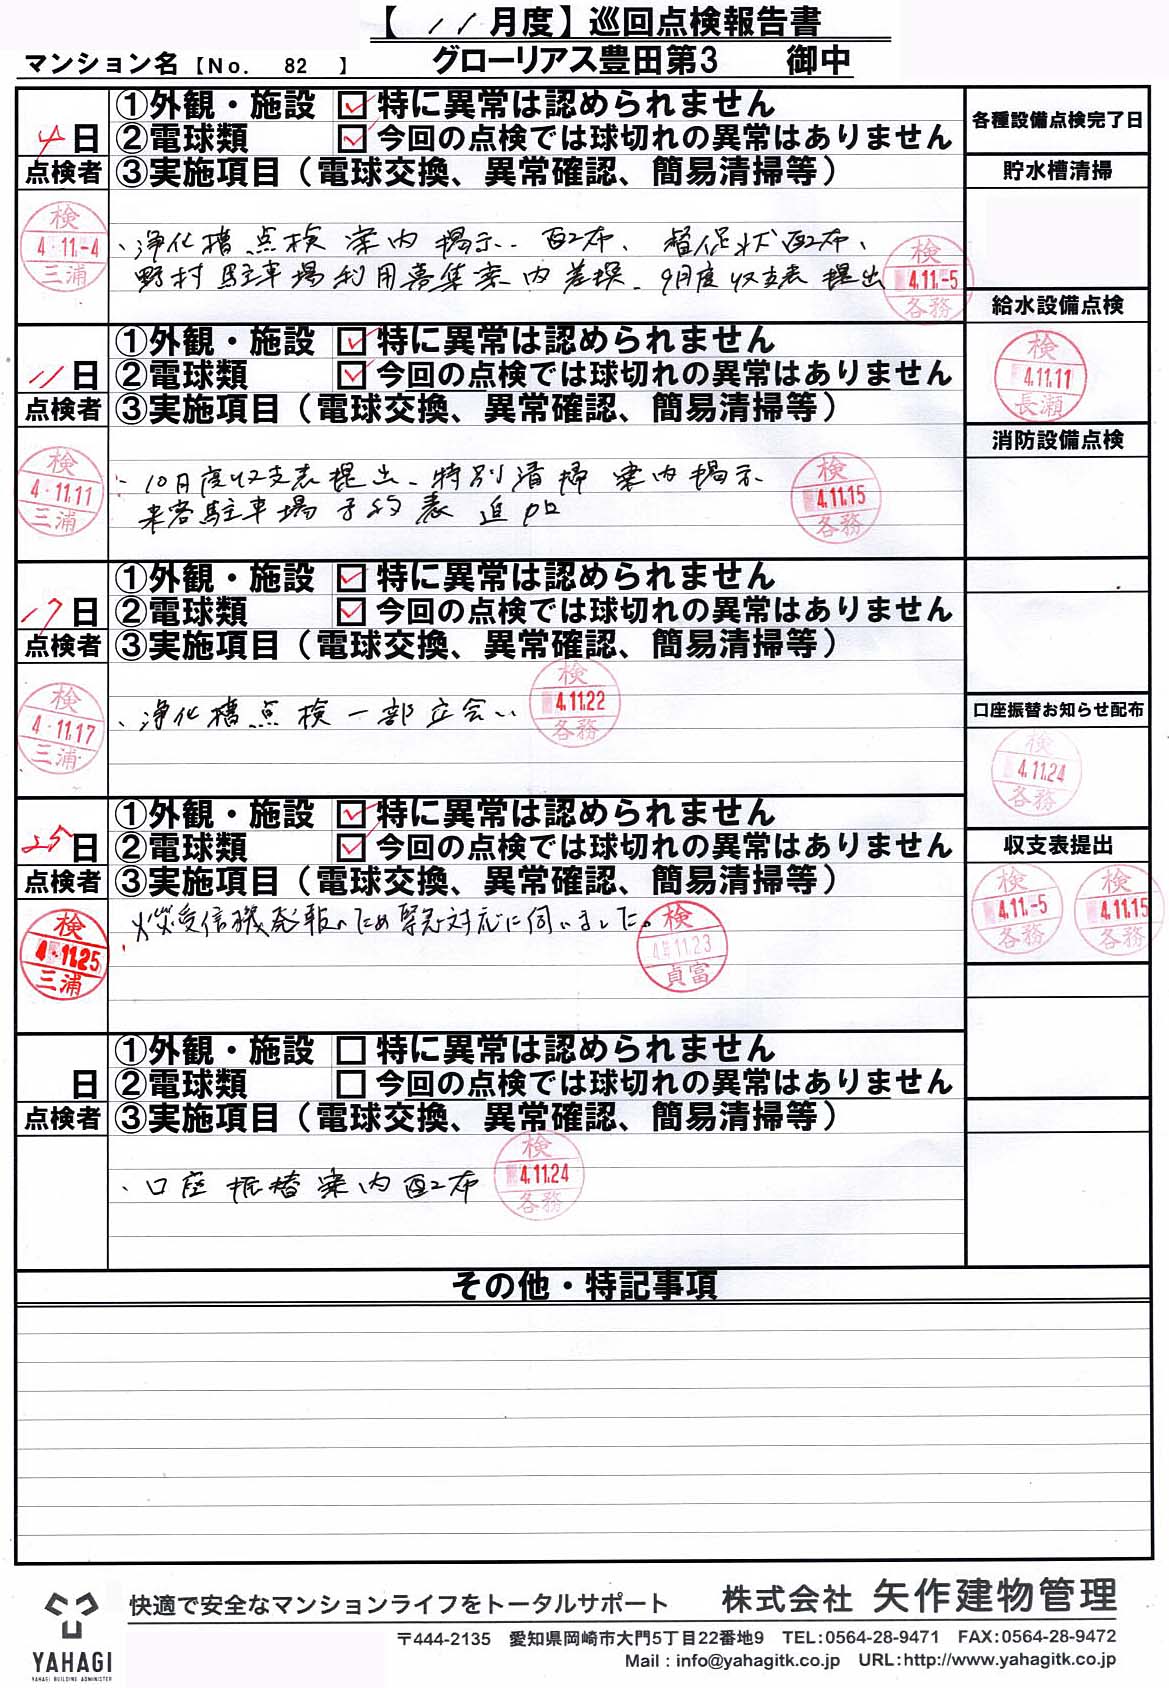 【 11 月度】巡回点検報告書
マンション名【No. 82 】 グローリアス豊田第3 御中
4日
①外観・施設 ☑ 特に異常は認められません
②電球類 ☑ 今回の点検では球切れの異常はありません
点検者 ③実施項目（電球交換、異常確認、簡易清掃等）
検 4・11.-4 三浦
、浄化槽点検案内掲示、配布、督促状配布、
野村駐車場利用募集案内差換、9月度収支表提出
検 4.11.-5 各務
11日
①外観・施設 ☑ 特に異常は認められません
②電球類 ☑ 今回の点検では球切れの異常はありません
点検者 ③実施項目（電球交換、異常確認、簡易清掃等）
検 4・11.11 三浦
、10月度収支表提出、特別清掃案内掲示
来客駐車場予約表追加
検 4.11.15 各務
17日
①外観・施設 ☑ 特に異常は認められません
②電球類 ☑ 今回の点検では球切れの異常はありません
点検者 ③実施項目（電球交換、異常確認、簡易清掃等）
検 4・11.17 三浦
、浄化槽点検一部立会い
検 4.11.22 各務
25日
①外観・施設 ☑ 特に異常は認められません
②電球類 ☑ 今回の点検では球切れの異常はありません
点検者 ③実施項目（電球交換、異常確認、簡易清掃等）
検 4・11.25 三浦
、火災受信機発報のため緊急対応に伺いました。
検 4.11.23 貞富
日
①外観・施設 □ 特に異常は認められません
②電球類 □ 今回の点検では球切れの異常はありません
点検者 ③実施項目（電球交換、異常確認、簡易清掃等）
、口座振替案内配布
検 4.11.24 各務
各種設備点検完了日
貯水槽清掃
給水設備点検
検 4.11.11 長瀬
消防設備点検
口座振替お知らせ配布
検 4.11.24 各務
収支表提出
検 4.11.-5 各務
検 4.11.15 各務
その他・特記事項
YAHAGI
YAHAGI BUILDING ADMINISTER
快適で安全なマンションライフをトータルサポート 株式会社 矢作建物管理
〒444-2135 愛知県岡崎市大門5丁目22番地9 TEL:0564-28-9471 FAX:0564-28-9472
Mail : info@yahagitk.co.jp URL:http://www.yahagitk.co.jp